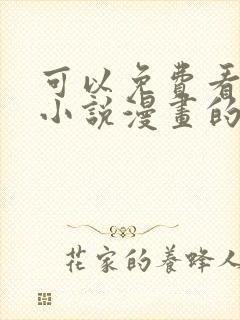 可以免費看
小說漫畫的
花家的養蜂人